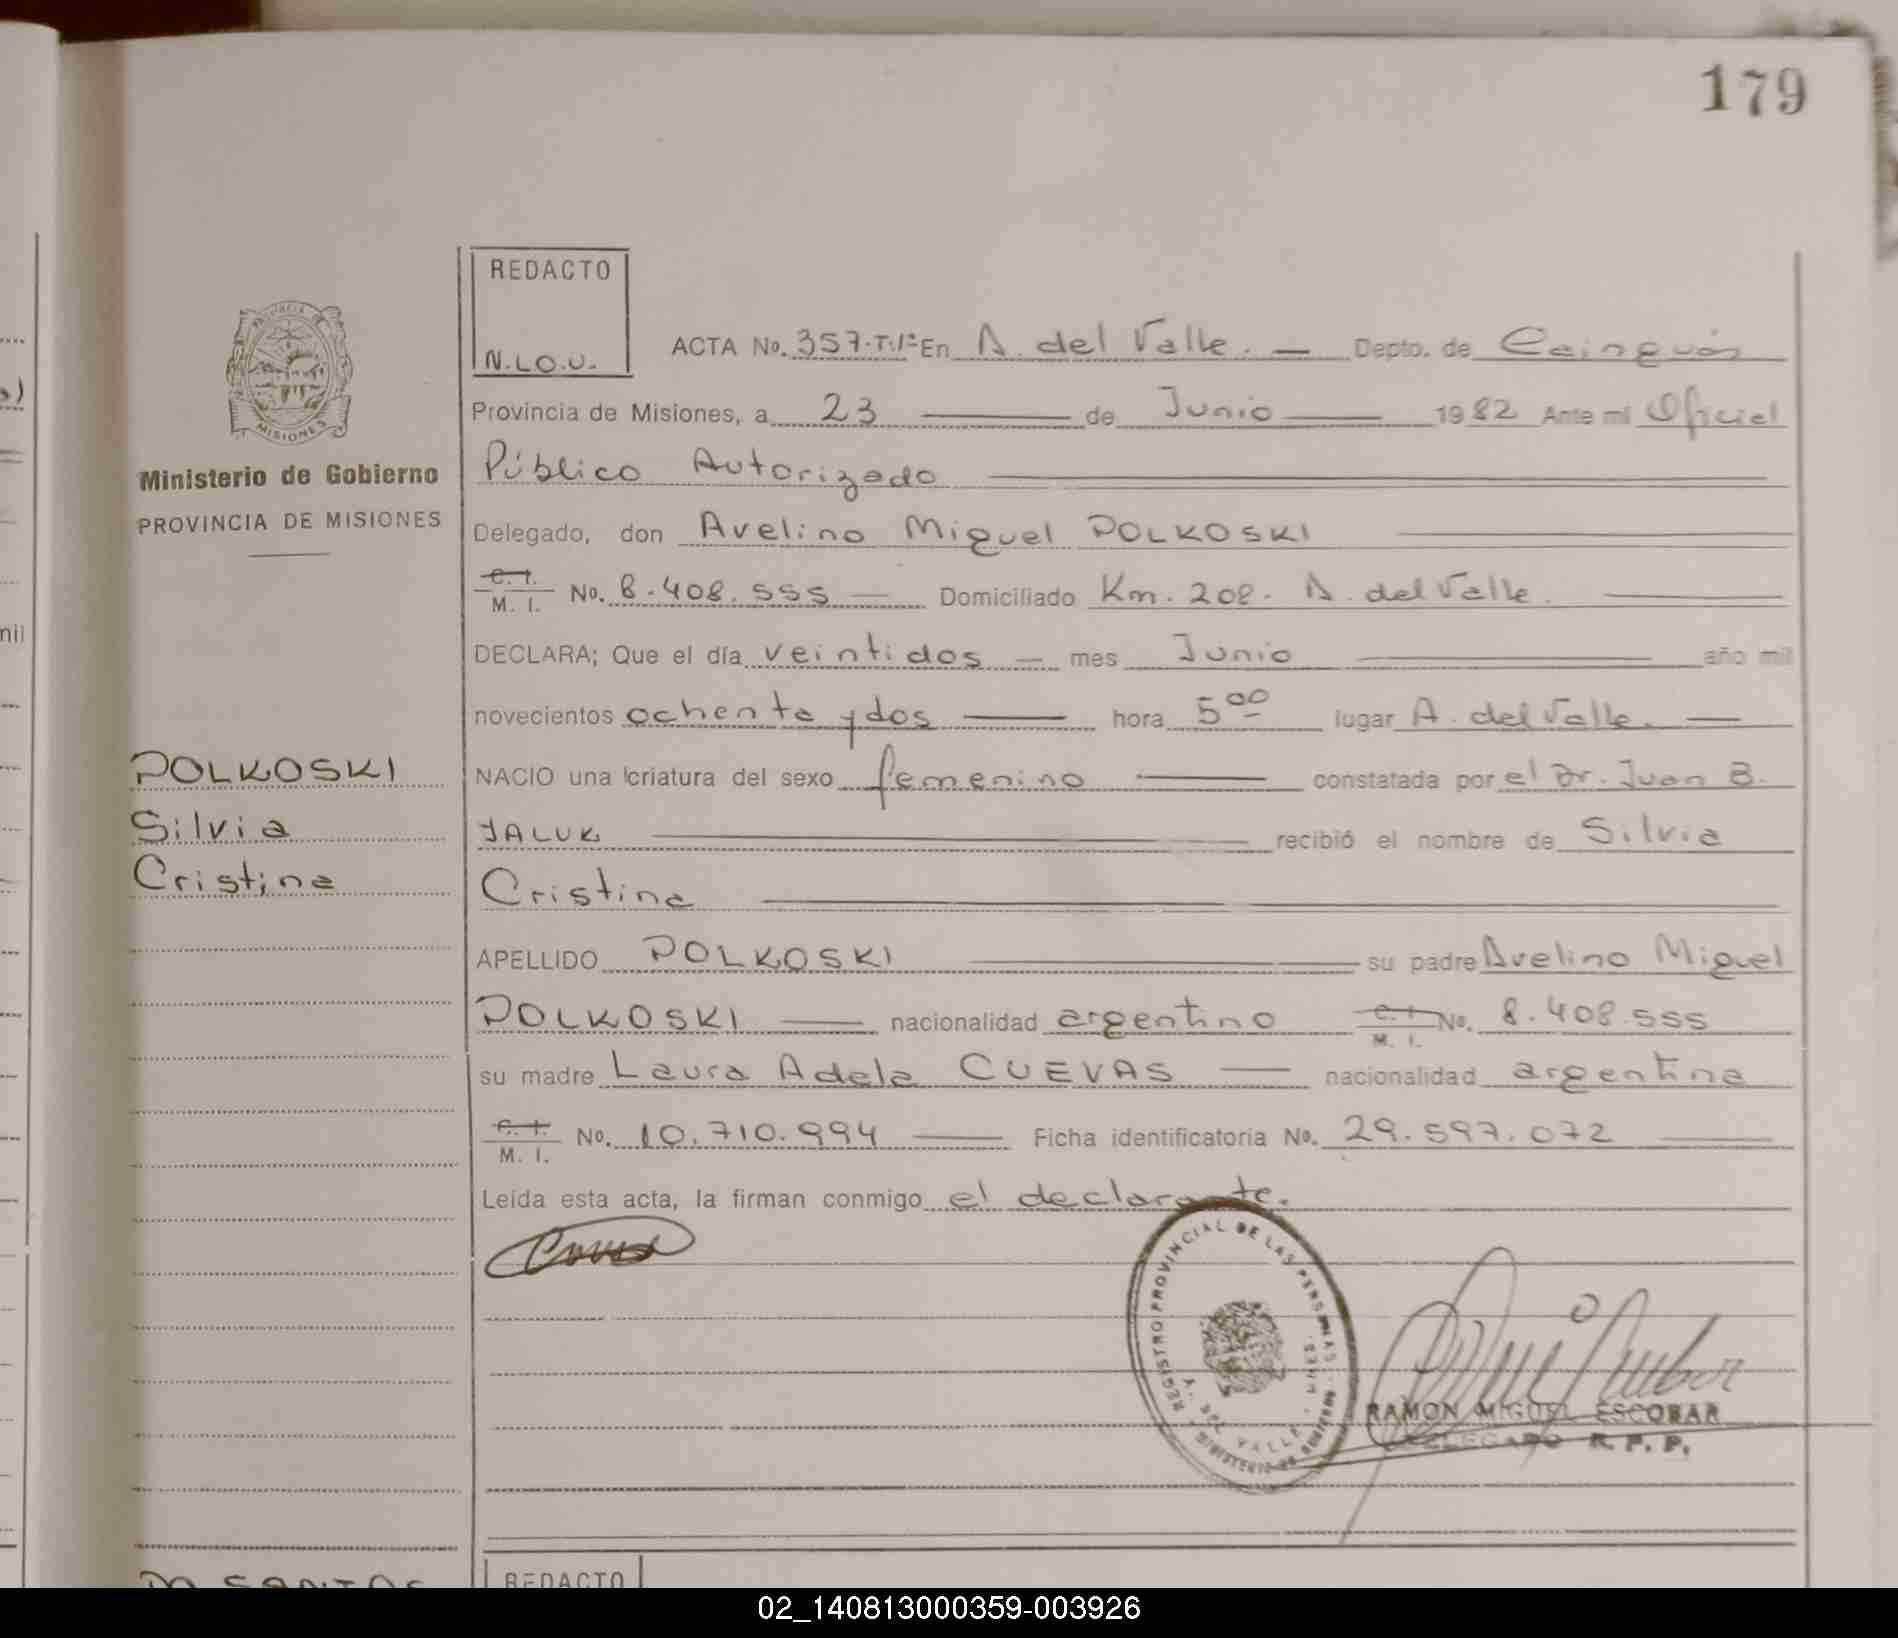 179
REDACTO
N.L.O.U.
ACTA No. 357.T.1º En A. del Valle. — Depto. de Cainguás
Provincia de Misiones, a 23 — de Junio — 1982 Ante mi Oficial
Público Autorizado
Delegado, don Avelino Miguel POLKOSKI
C. I.
M. I. No. 8.408.555 — Domiciliado Km. 208. A. del Valle.
DECLARA; Que el día veintidos — mes Junio — año mil
novecientos ochenta y dos — hora 5 00 lugar A. del Valle. —
NACIO una criatura del sexo femenino — constatada por el Dr. Juan B.
YALUK — recibió el nombre de Silvia
Cristina
APELLIDO POLKOSKI — su padre Avelino Miguel
POLKOSKI — nacionalidad argentino C. I. M. I. No. 8.408.555
su madre Laura Adela CUEVAS — nacionalidad argentina
C. I.
M. I. No. 10.710.994 — Ficha identificatoria No. 29.597.072
Leída esta acta, la firman conmigo el declarante.
Ministerio de Gobierno
PROVINCIA DE MISIONES
POLKOSKI
Silvia
Cristina
PROVINCIA DE
MISIONES
REGISTRO PROVINCIAL DE LAS PERSONAS
MINISTERIO DE
A. DEL VALLE
RAMON MIGUEL ESCOBAR
DELEGADO R. P. P.
REDACTO
02_140813000359-003926